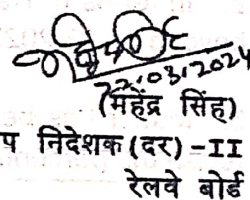 22.03.2024
(महेंद्र सिंह)
प निदेशक (दर) -II
रेलवे बोर्ड